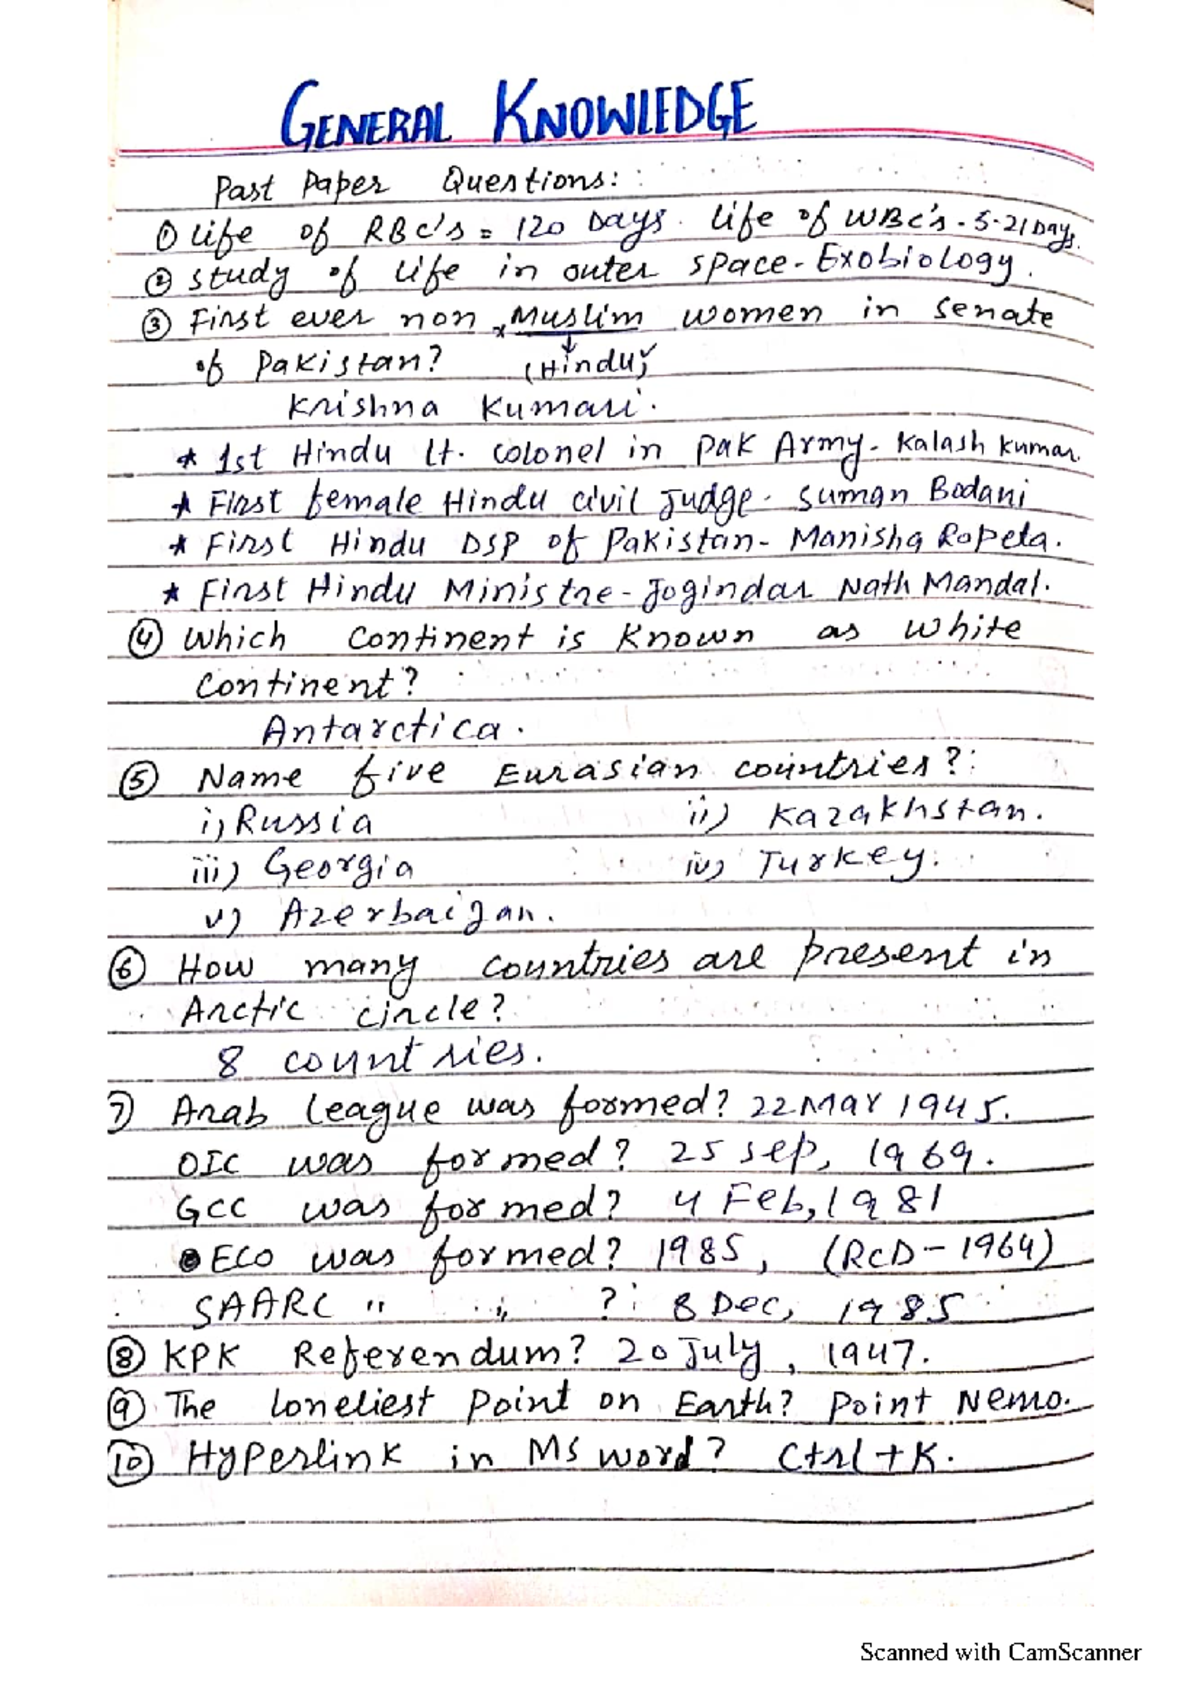 GENERAL KNOWLEDGE
Past Paper Questions:
① Life of RBC's = 120 Days. Life of WBC's - 5-21 Days.
② Study of life in outer space - Exobiology.
③ First ever non Muslim women in Senate
of Pakistan? (Hindu)
Krishna Kumari.
* 1st Hindu Lt. Colonel in Pak Army - Kalash Kumar.
* First female Hindu civil Judge - Suman Bodani
* First Hindu DSP of Pakistan - Manisha Ropeta.
* First Hindu Ministre - Jogindar Nath Mandal.
④ Which continent is known as white
continent?
Antarctica.
⑤ Name five Eurasian countries?:
i) Russia ii) Kazakhstan.
iii) Georgia iv) Turkey.
v) Azerbaijan.
⑥ How many countries are present in
Arctic circle?
8 countries.
7) Arab League was formed? 22 Mar 1945.
OIC was formed? 25 sep, 1969.
GCC was formed? 4 Feb, 1981
ECO was formed? 1985, (RCD - 1964)
SAARC " " ? 8 Dec, 1985
⑧ KPK Referendum? 20 July, 1947.
⑨ The loneliest point on Earth? Point Nemo.
⑩ Hyperlink in MS word? Ctrl + K.
Scanned with CamScanner